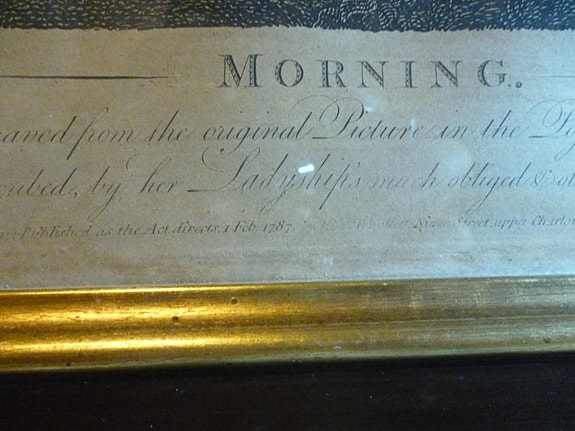 MORNING.
aved from the original Picture in the
ribed, by her Ladyship's much obliged &
Published as the Act directs, 1 Feb. 1787. Street, upper Charlot